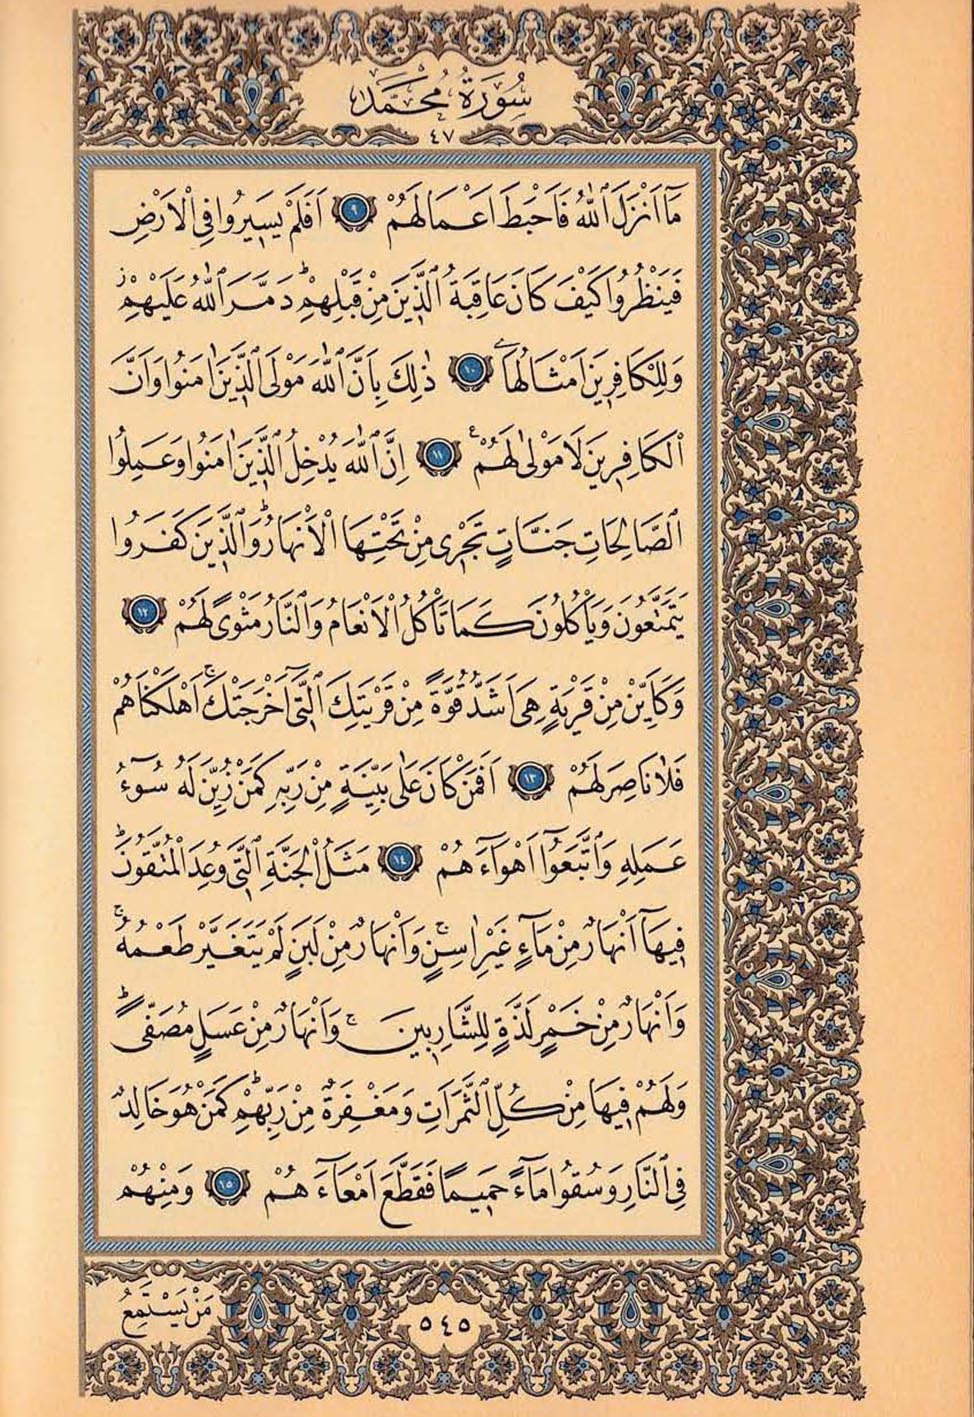 سُورَةُ مُحَمَّدٍ
٤٧
مَٓا اَنْزَلَ اللّٰهُ فَاَحْبَطَ اَعْمَالَهُمْ ٩ اَفَلَمْ يَسٖيرُوا فِي الْاَرْضِ
فَيَنْظُرُوا كَيْفَ كَانَ عَاقِبَةُ الَّذٖينَ مِنْ قَبْلِهِمْؕ دَمَّرَ اللّٰهُ عَلَيْهِمْؗ
وَلِلْكَافِرٖينَ اَمْثَالُهَا ١٠ ذٰلِكَ بِاَنَّ اللّٰهَ مَوْلَى الَّذٖينَ اٰمَنُوا وَاَنَّ
الْكَافِرٖينَ لَا مَوْلٰى لَهُمْ ع ١١ اِنَّ اللّٰهَ يُدْخِلُ الَّذٖينَ اٰمَنُوا وَعَمِلُوا
الصَّالِحَاتِ جَنَّاتٍ تَجْرٖى مِنْ تَحْتِهَا الْاَنْهَارُؕ وَالَّذٖينَ كَفَرُوا
يَتَمَتَّعُونَ وَيَاْكُلُونَ كَمَا تَاْكُلُ الْاَنْعَامُ وَالنَّارُ مَثْوًى لَهُمْ ١٢
وَكَاَيِّنْ مِنْ قَرْيَةٍ هِىَ اَشَدُّ قُوَّةً مِنْ قَرْيَتِكَ الَّتٖٓى اَخْرَجَتْكَۚ اَهْلَكْنَاهُمْ
فَلَا نَاصِرَ لَهُمْ ١٣ اَفَمَنْ كَانَ عَلٰى بَيِّنَةٍ مِنْ رَبِّهٖ كَمَنْ زُيِّنَ لَهُ سُٓوءُ
عَمَلِهٖ وَاتَّبَعُٓوا اَهْوَٓاءَهُمْ ١٤ مَثَلُ الْجَنَّةِ الَّتٖى وُعِدَ الْمُتَّقُونَؕ
فٖيهَٓا اَنْهَارٌ مِنْ مَٓاءٍ غَيْرِ اٰسِنٍۚ وَاَنْهَارٌ مِنْ لَبَنٍ لَمْ يَتَغَيَّرْ طَعْمُهُۚ
وَاَنْهَارٌ مِنْ خَمْرٍ لَذَّةٍ لِلشَّارِبٖينَۚ وَاَنْهَارٌ مِنْ عَسَلٍ مُصَفًّىؕ
وَلَهُمْ فٖيهَا مِنْ كُلِّ الثَّمَرَاتِ وَمَغْفِرَةٌ مِنْ رَبِّهِمْؕ كَمَنْ هُوَ خَالِدٌ
فِي النَّارِ وَسُقُوا مَٓاءً حَمٖيمًا فَقَطَّعَ اَمْعَٓاءَهُمْ ١٥ وَمِنْهُمْ
مَنْ يَسْتَمِعُ
٥٤٥